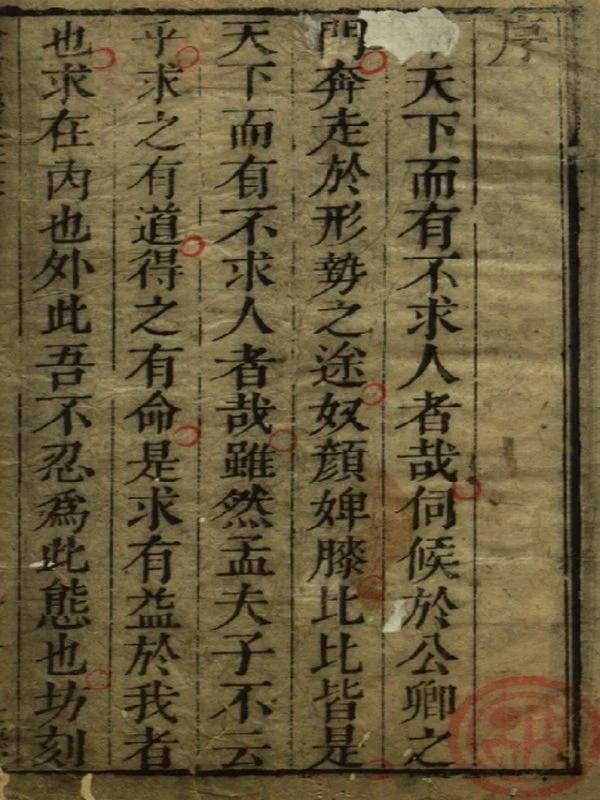 序
天下而有不求人者哉伺候於公卿之
門奔走於形勢之途奴顔婢膝比比皆是
天下而有不求人者哉雖然孟夫子不云
乎求之有道得之有命是求有益於我者
也求在內也外此吾不忍爲此態也坊刻